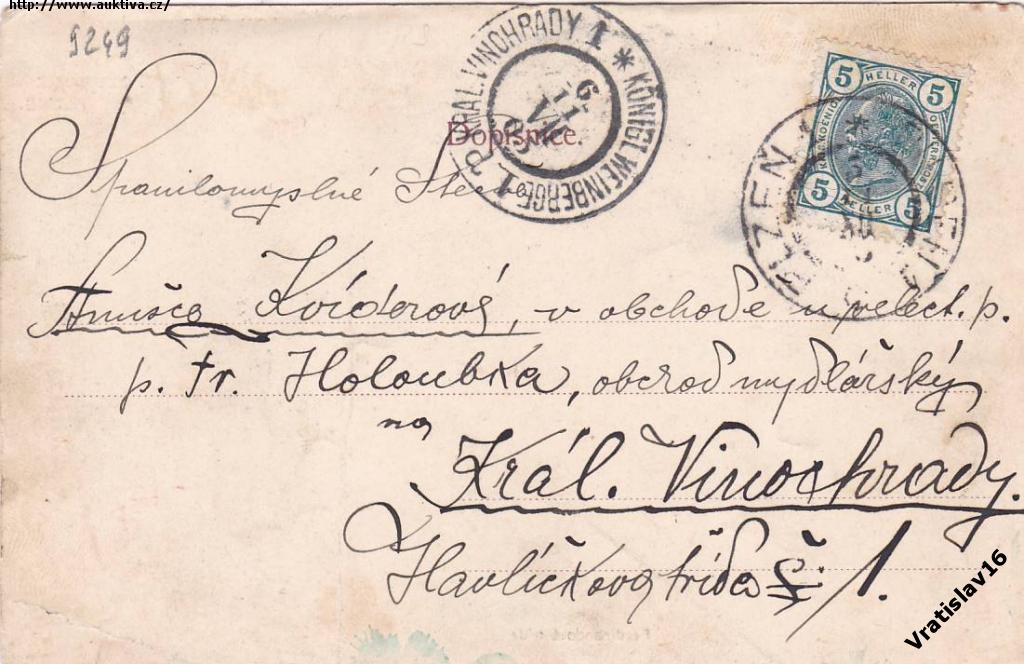 http://www.auktiva.cz/
9249
KRÁL. VINOHRADY 1 * KÖNIGL. WEINBERGE 1
Dopisnice.
5 HELLER 5
5 HELLER 5
PLZEN
Spanilomyslné Slečně
Anušce Kvíderové, v obchodě u velect. p.
p. Fr. Holoubka, obchod mydlářský
na
Král. Vinohrady.
Havlíčkova třída č. /1.
Vratislav16